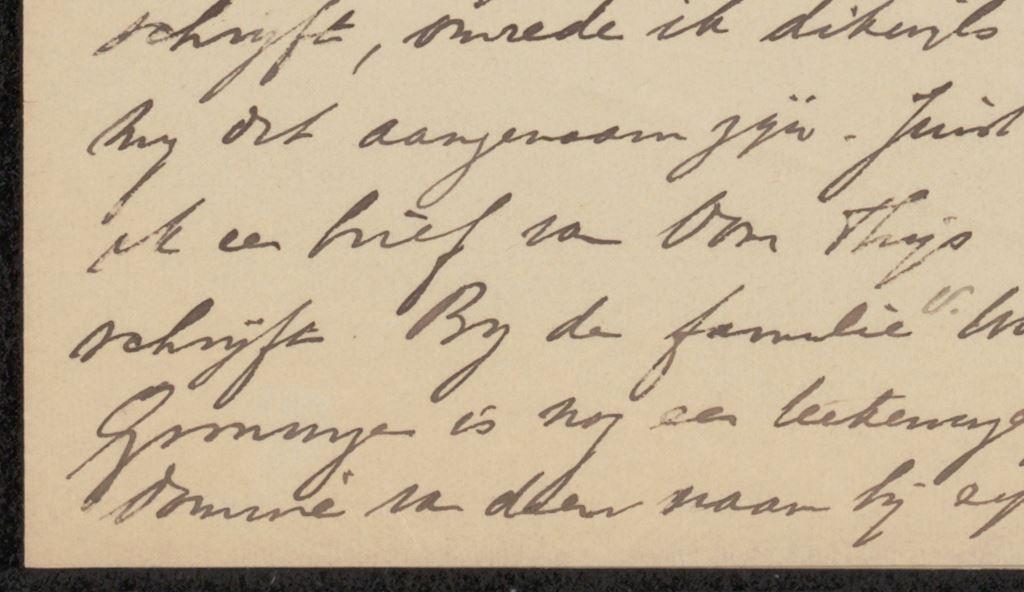 schrijft, omrede ik dikwijls
my dit aangenaam zijn. Juist
ik een brief van Oom Thijs
schrijft. By de familie v.
Groningen is nog een
Dominé van dien naam bij